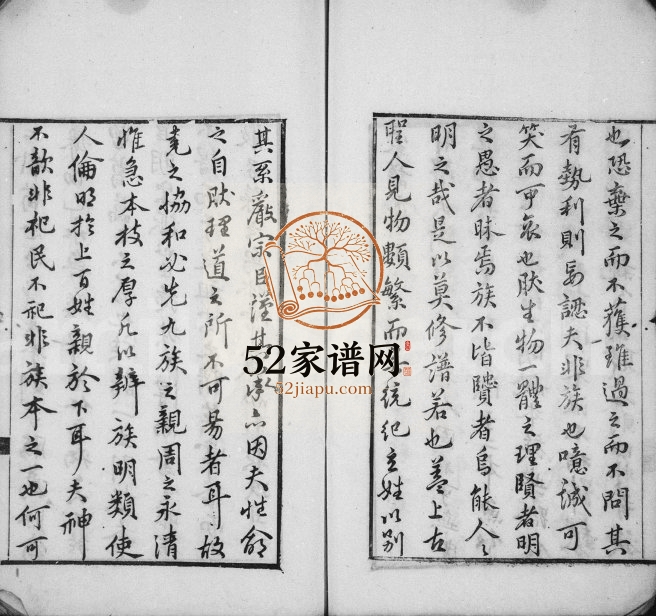 也恐棄之而不獲雖過之而不問其
有勢利則妄認夫非族也噫誠可
笑而可哀也肰生物一體之理賢者明
之愚者昧焉族不皆賢者烏能人〻
明之哉是以莫修譜若也蓋上古
聖人見物類繁而 統紀立姓以別
其系嚴宗臣謹其 亦因夫性命
之自肰理道之所不可易者耳故
堯之協和必先九族之親周之永清
惟急本枝之厚凡以辨族明類使
人倫明於上百姓親於下耳夫神
不歆非祀民不祀非族本之一也何可
52家谱网
52jiapu.com